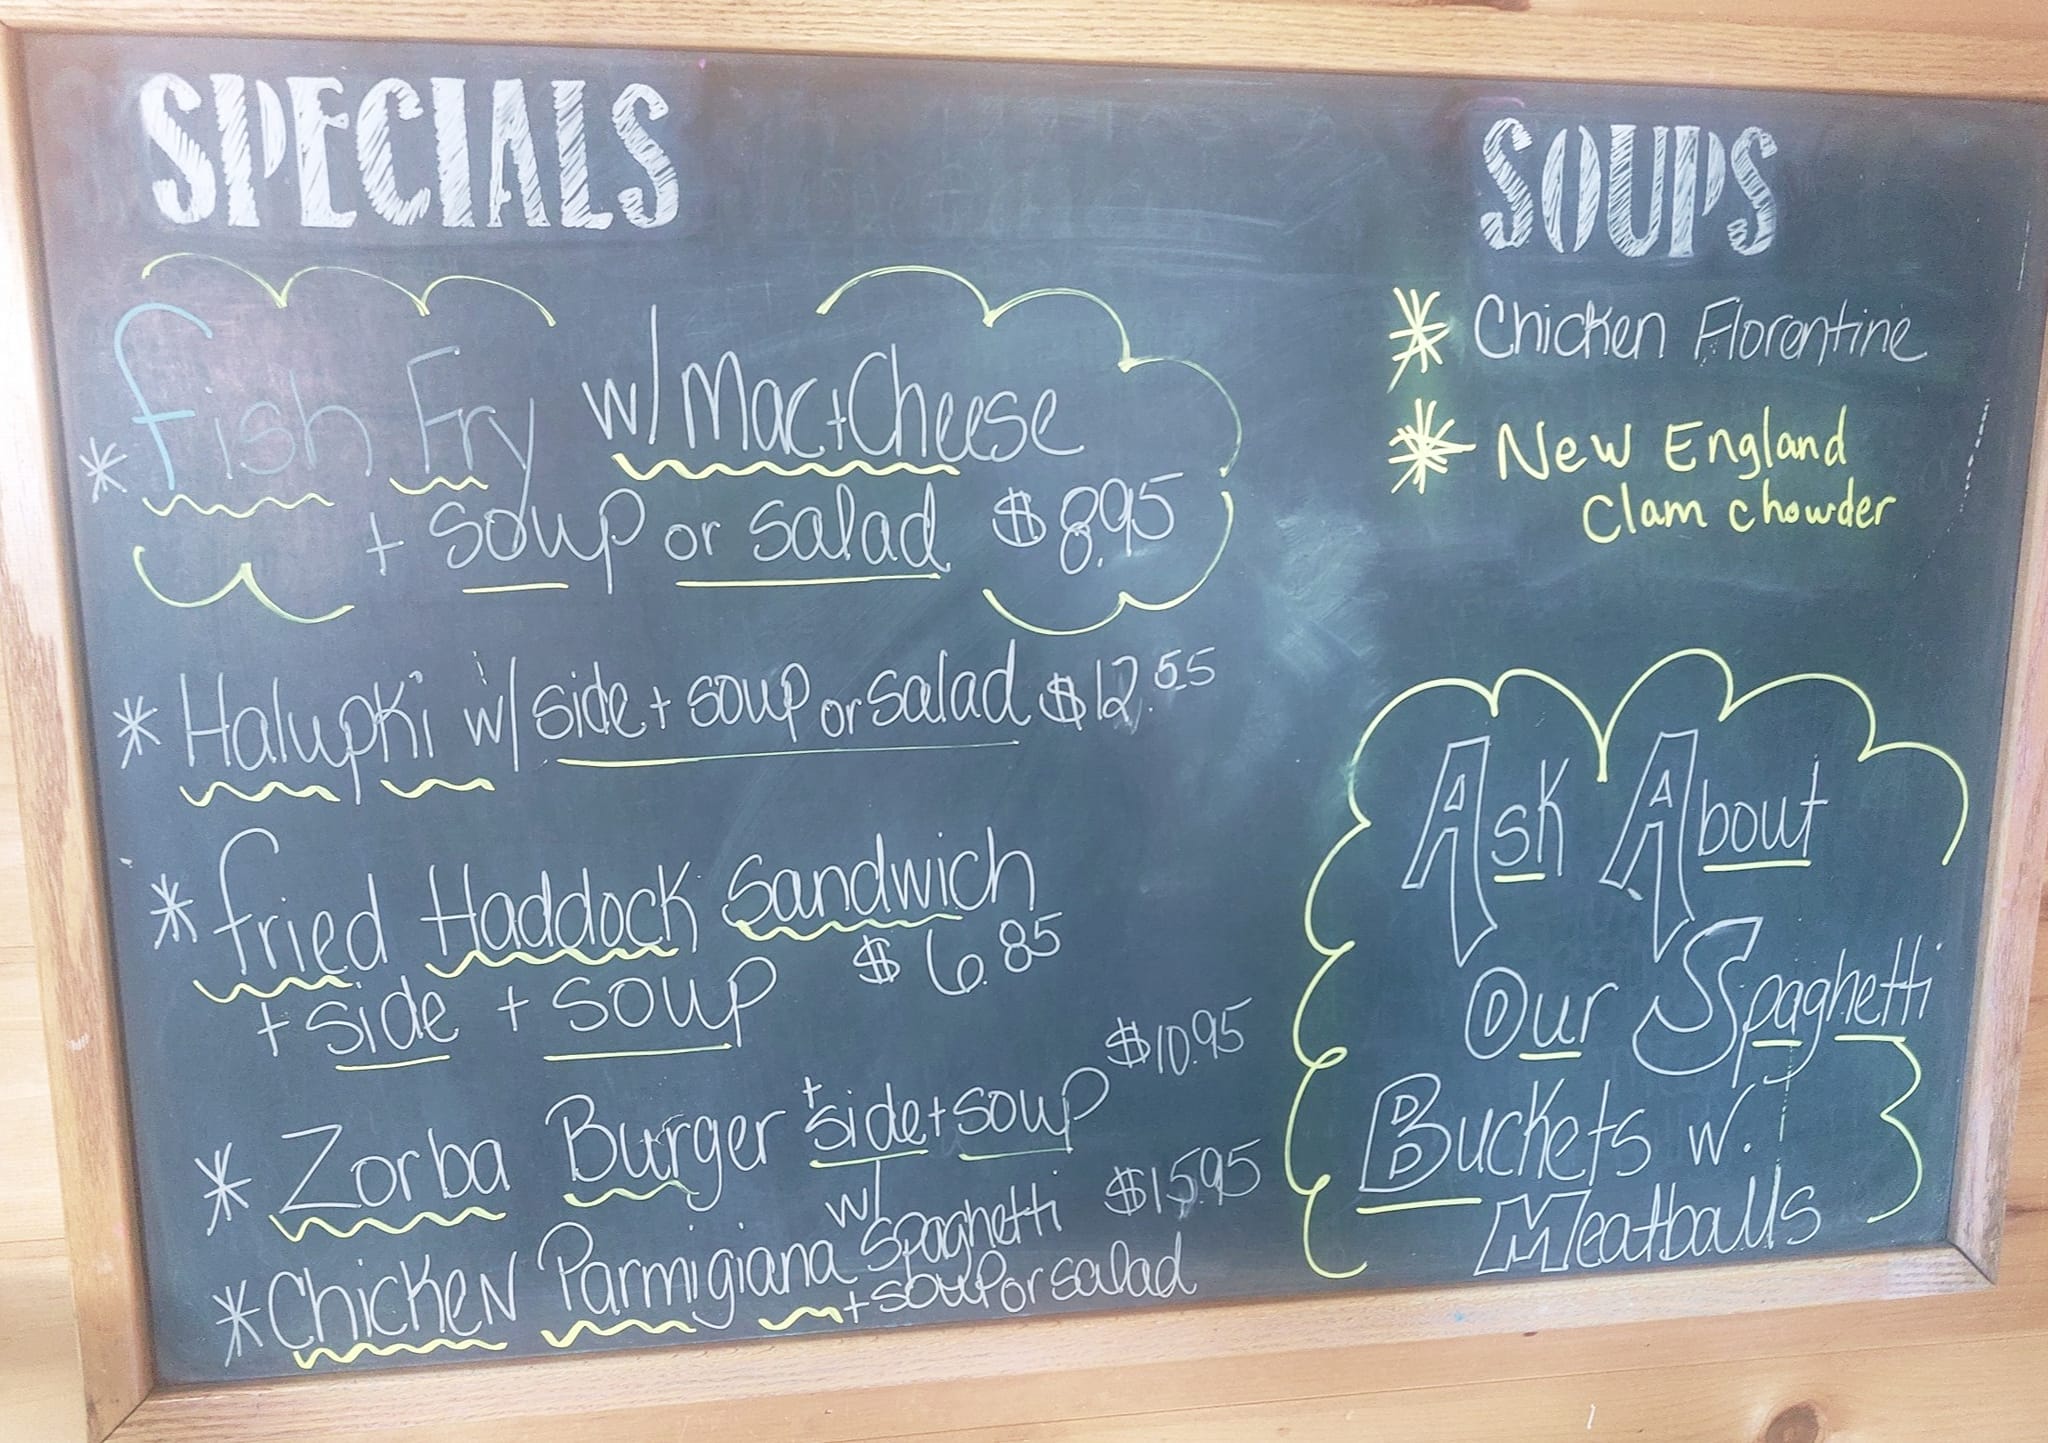 SPECIALS
* Fish Fry w/ Mac + Cheese
+ soup or salad $8.95
* Halupki w/ side + soup or salad $12.55
* Fried Haddock Sandwich
$6.85
+ side + soup
* Zorba Burger + side + soup $10.95
* Chicken Parmigiana w/ Spaghetti $15.95
+ soup or salad
SOUPS
* Chicken Florentine
* New England
Clam chowder
Ask About
Our Spaghetti
Buckets w.
Meatballs